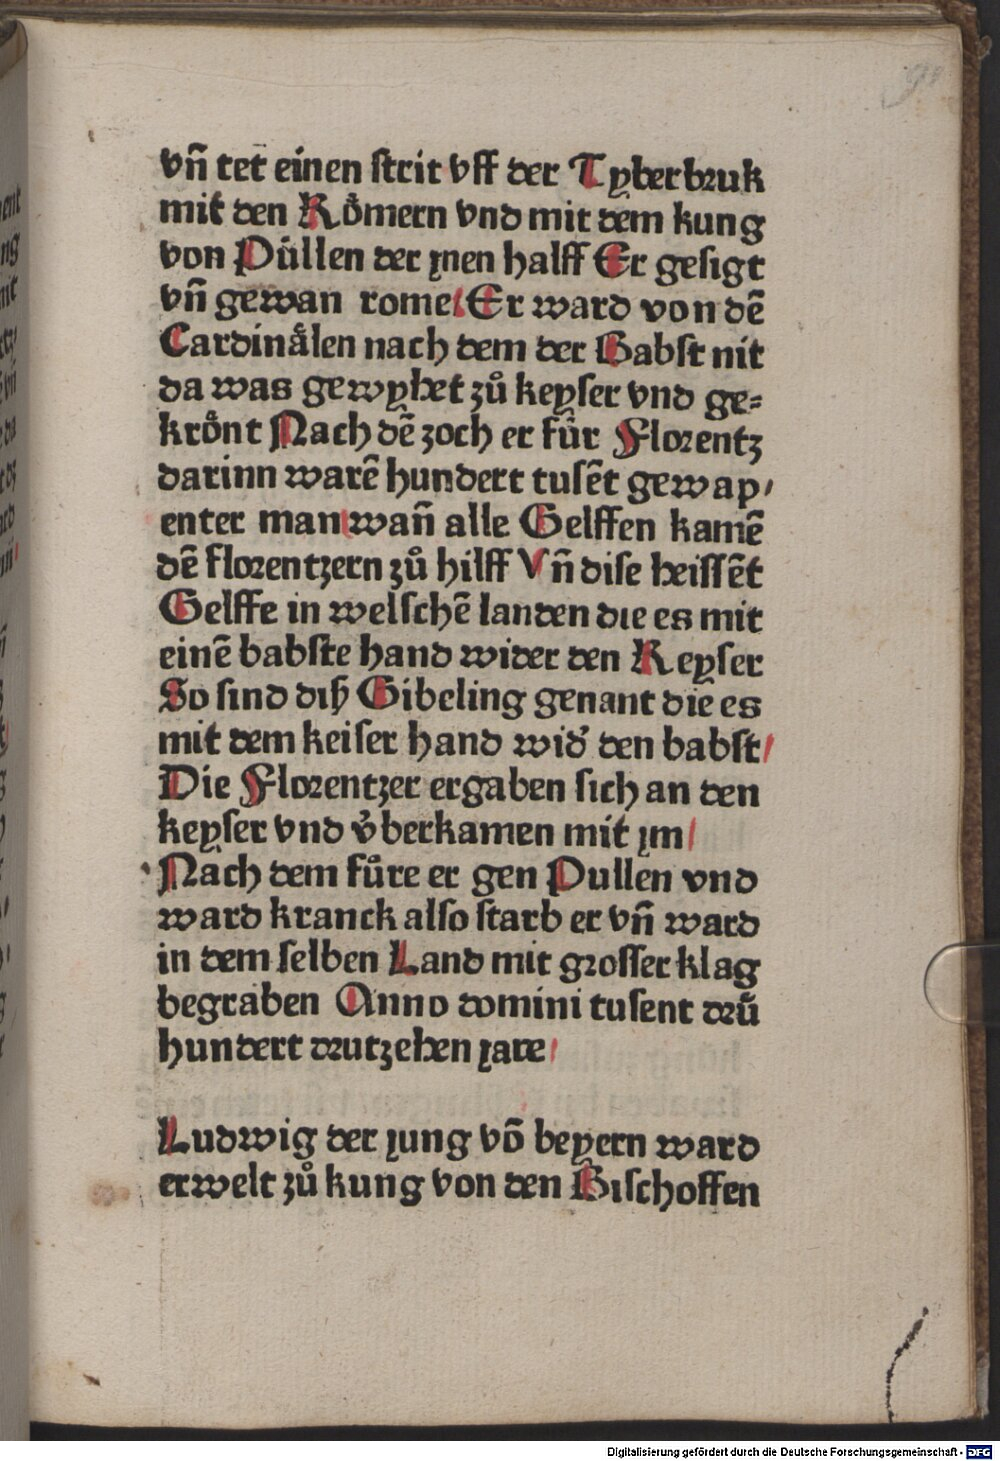 vñ tet einen strit vff der Tyberbruk
mit den Rȯmern vnd mit dem kung
von Pu̇llen der ynen halff Er gesigt
vñ gewan rome Er ward von dẽ
Cardinålen nach dem der Babst nit
da was gewyhet zů keyser vnd ge=
krȯnt Nach dẽ zoch er fu̇r Florentz
darinn warẽ hundert tusẽt gewap/
enter man wañ alle Gelffen kamẽ
dẽ florentzern zů hilff Vñ dise heissẽt
Gelffe in welschẽ landen die es mit
einẽ babste hand wider den Keyser
So sind diß Gibeling genant die es
mit dem keiser hand wid' den babst/
Die Florentzer ergaben sich an den
keyser vnd v̇berkamen mit ym/
Nach dem fůre er gen Pullen vnd
ward kranck also starb er vñ ward
in dem selben Land mit grosser klag
begraben Anno domini tusent dru̇
hundert drutzehen yare/
Ludwig der yung võ beyern ward
erwelt zů kung von den Bischoffen
Digitalisierung gefördert durch die Deutsche Forschungsgemeinschaft - DFG